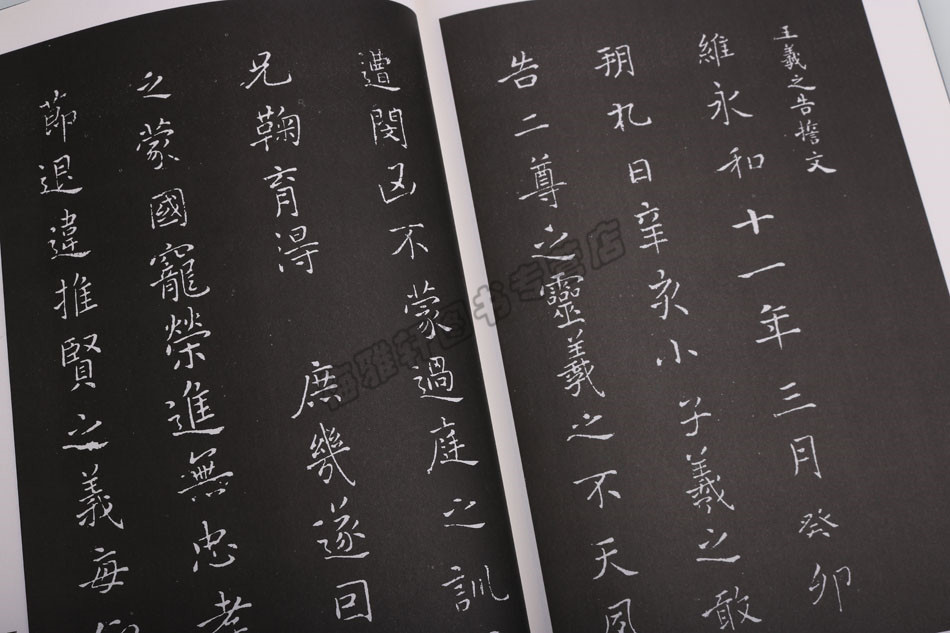 王羲之告誓文
維永和十一年三月癸卯
朔九日辛亥小子羲之敢
告二尊之靈羲之不天夙
遭閔凶不蒙過庭之訓
兄鞠育得 庶幾遂因
之蒙國寵榮進無忠孝
節退違推賢之義每
海雅轩图书专营店